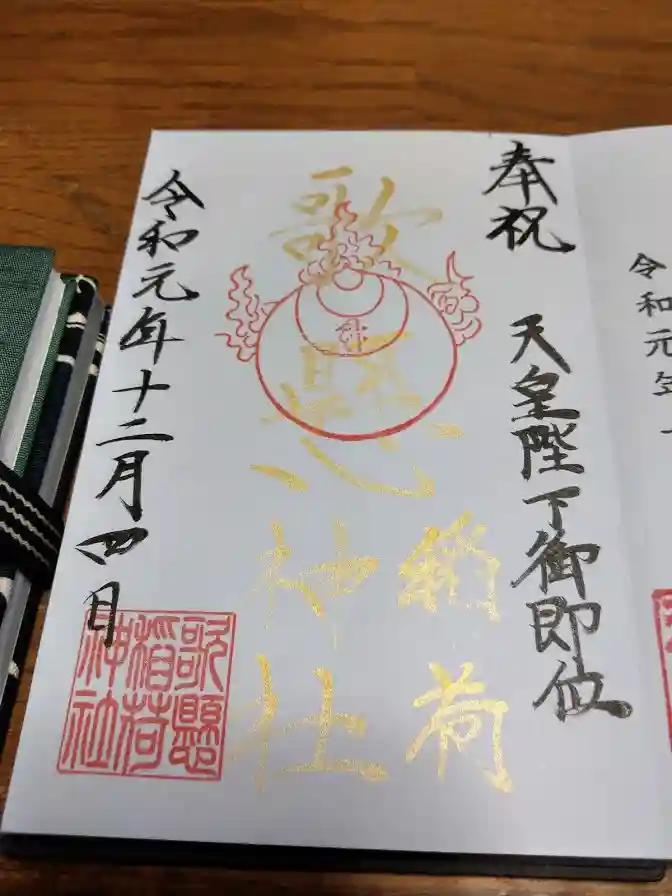 令和元年
奉祝 天皇陛下御即位
歌懸
稲荷
神社
令和元年十二月四日
歌懸
稲荷
神社